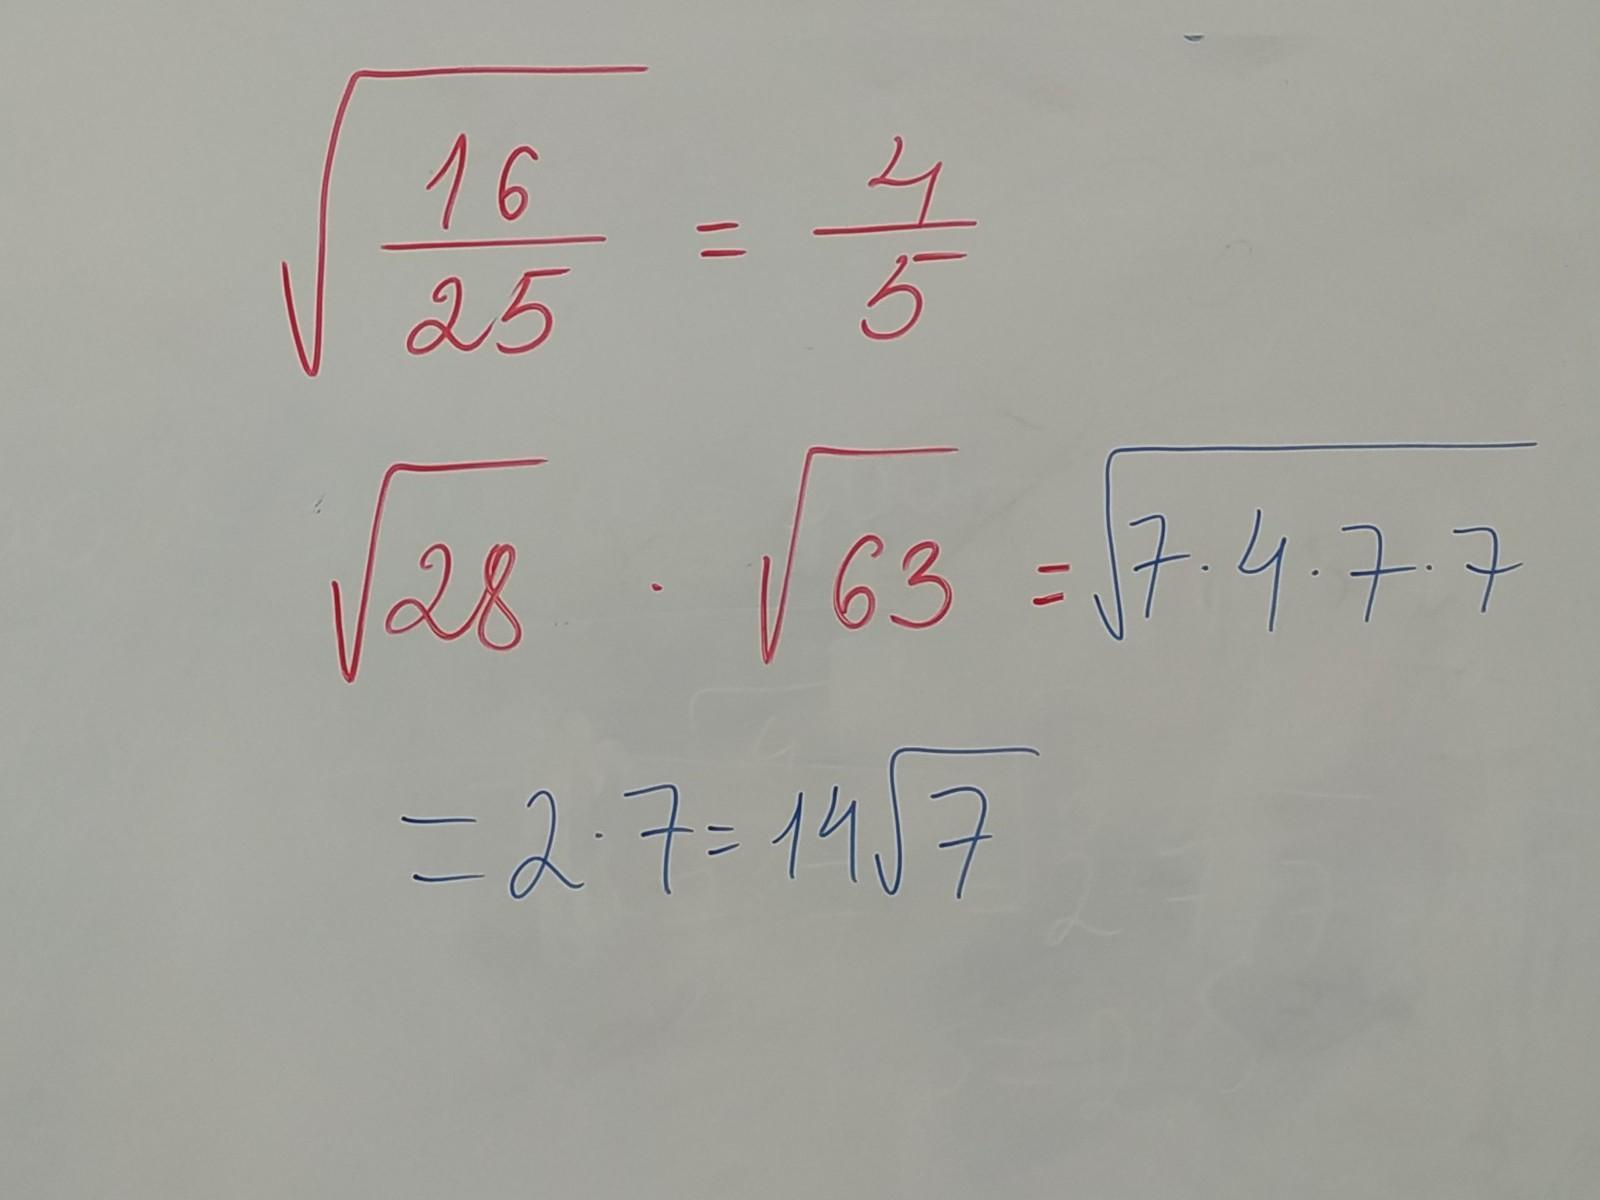 √(16/25) = 4/5
√28 · √63 = √(7·4·7·7)
= 2·7 = 14√7